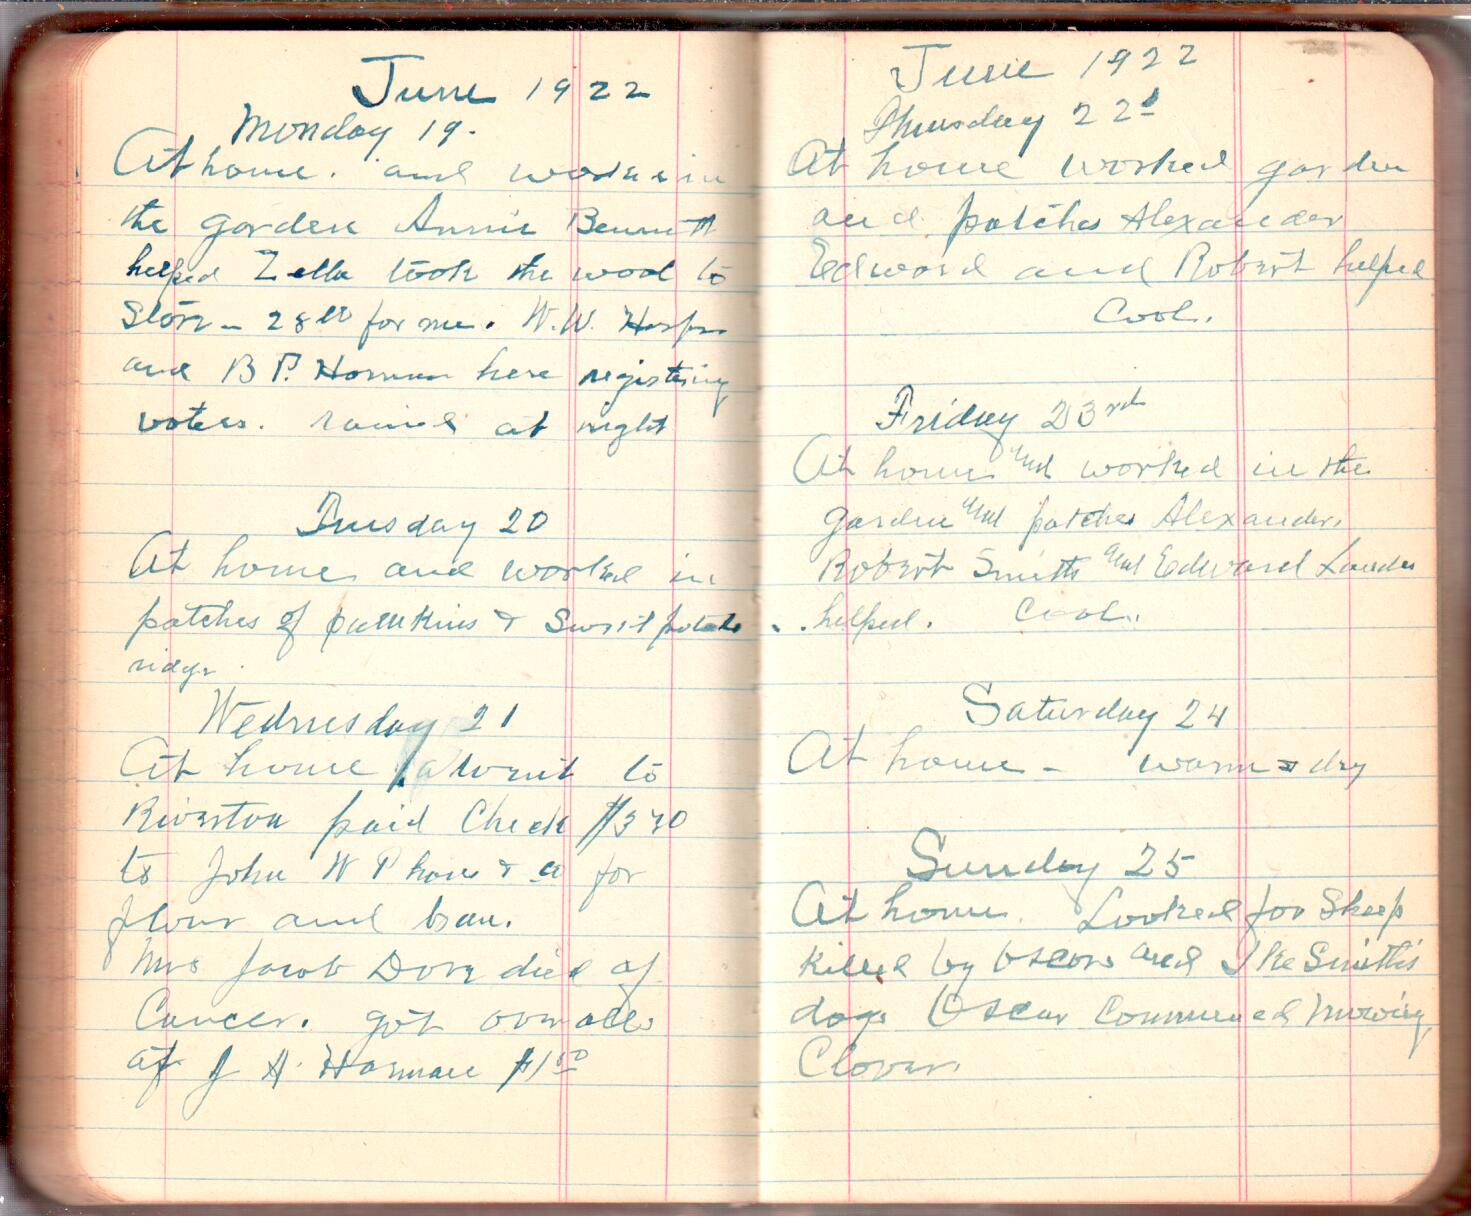 June 1922
Monday 19.
At home. and worke in
the garden Annie Bennett
helped Zella took the wool to
Store - 28 for me. W. W. Harper
and B P. Harman here registering
voters. rained at night
Tuesday 20
At home and worked in
patches of pumkins & Sweet potato
ridge.
Wednesday 21
At home went to
Riverton paid Check $3
to John W & co for
flour and bran.
Mrs Jacob Dove died of
Cancer. got overalls
at J H. Harman $1 50
June 1922
Thursday 22d
At home worked garden
and patches Alexander
Edward and Robert helped
Cool.
Friday 23rd
At home and worked in the
garden and patches Alexander.
Robert Smith and Edward
helped. Cool.
Saturday 24
At home - warm & dry
Sunday 25
At home. Looked for Sheep
killed by Oscars and Ike Smith's
dogs Oscar Commenced Mowing
Clover.